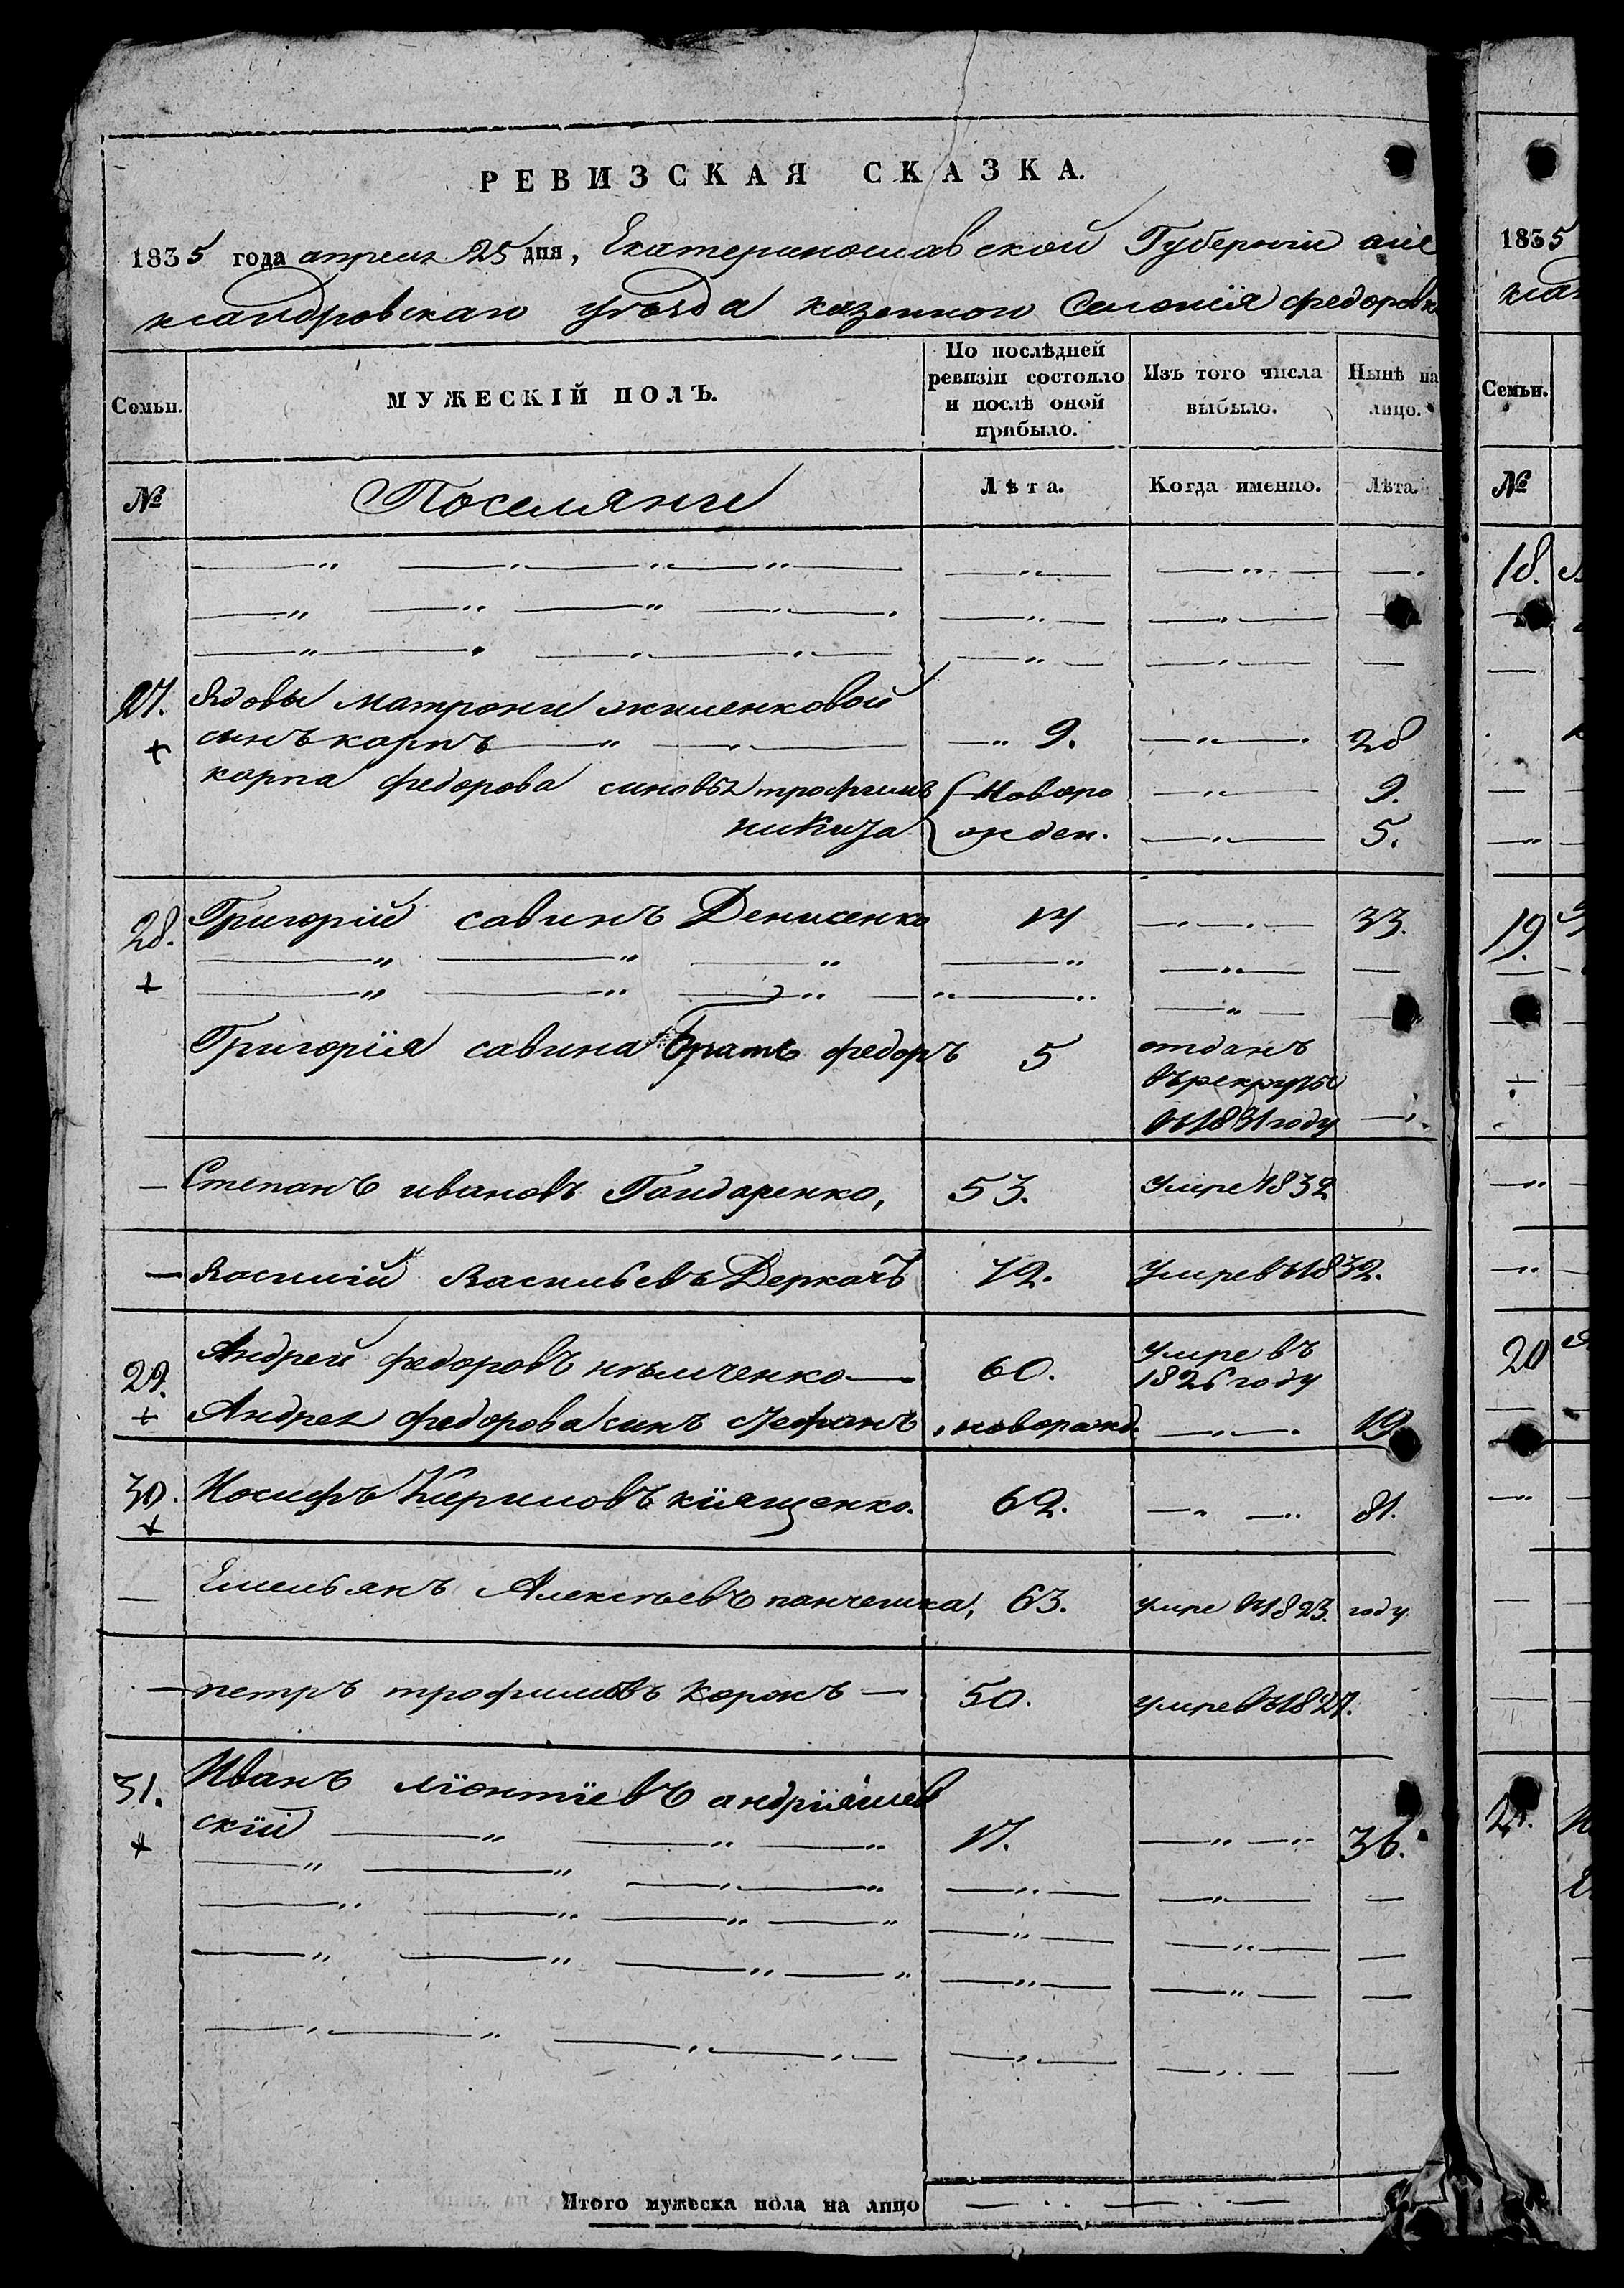 РЕВИЗСКАЯ СКАЗКА.
1835 года апреля 25 дня, Екатеринославской Губернии алe
ксандровскаго уѣзда казенного Селенія федоровк
Семьи.
МУЖЕСКІЙ ПОЛЪ.
По послѣдней ревизіи состояло и послѣ оной прибыло.
Изъ того числа выбыло.
Нынѣ на лицо.
№
Поселяне
Лѣта.
Когда именно.
Лѣта.
27. Вдовы матрони
сынъ карпъ 9. 28
карпа федорова синовья трофимъ Новоро 9.
никита жден. 5.
28. Григорій савинъ Денисенко 14 33.
Григорія савина братъ федоръ 5 отданъ
въ рекруты
въ 1831 году
Степанъ ивановъ Гондаренко, 53. Умре 1832
Василій Васильевъ Деркачъ 72. Умре въ 1832.
29. Андрей федоровъ нѣмченко 60. Умре въ
1826 году
Андрея федорова синъ стефанъ, новорожд. 19.
30. Иосифъ Кириловъ кіященко. 62. 81.
Емельянъ Алексѣевъ панчешка, 63. умре въ 1823. году
петръ трофимовъ Коржъ 50. умре въ 1827.
31. Иванъ ліонтіевъ андріяшев
скій 17. 36.
Итого мужеска пола на лицо
1835
ксан
Семьи.
№
18.
19.
20
21.